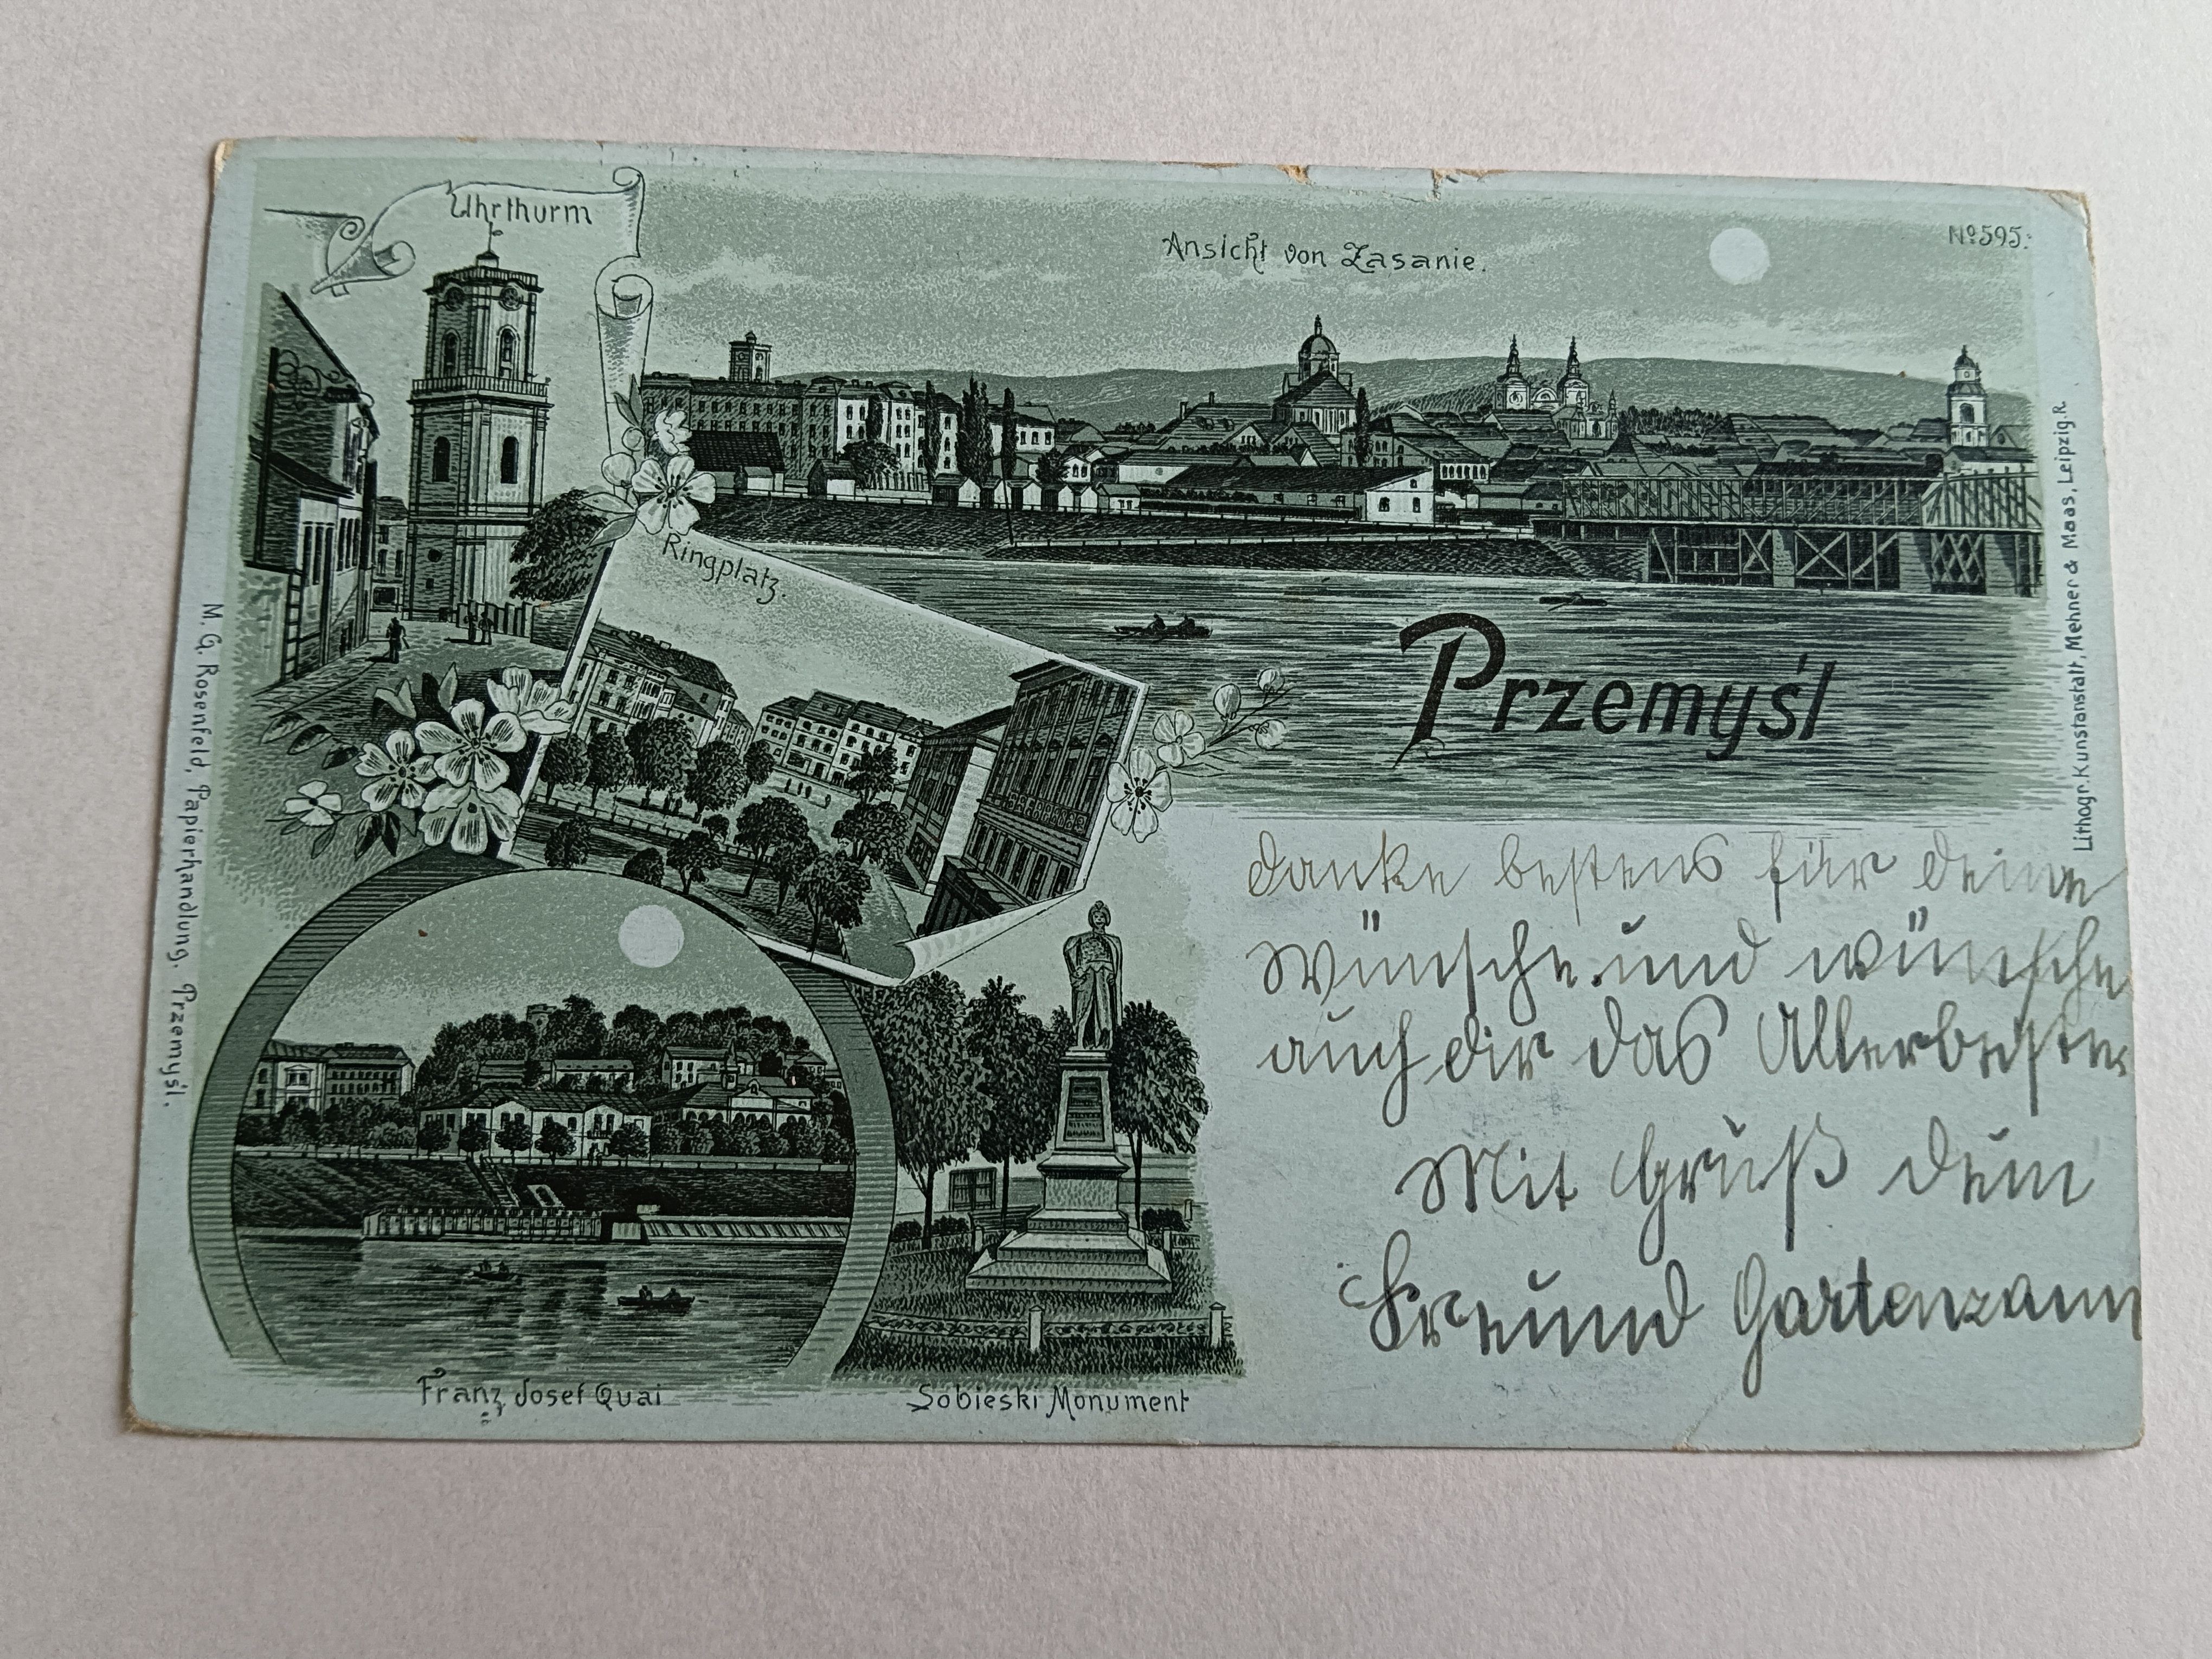 Uhrthurm
Ansicht von Zasanie.
Nº 595.
Ringplatz.
Przemyśl
Lithogr. Kunstanstalt, Mehner & Maas, Leipzig.R.
M. G. Rosenfeld, Papierhandlung. Przemyśl.
danke bestens für deine
Wünsche und wünsche
auch dir das Allerbeste
Mit Gruß dein
Freund
Franz Josef Quai
Sobieski Monument